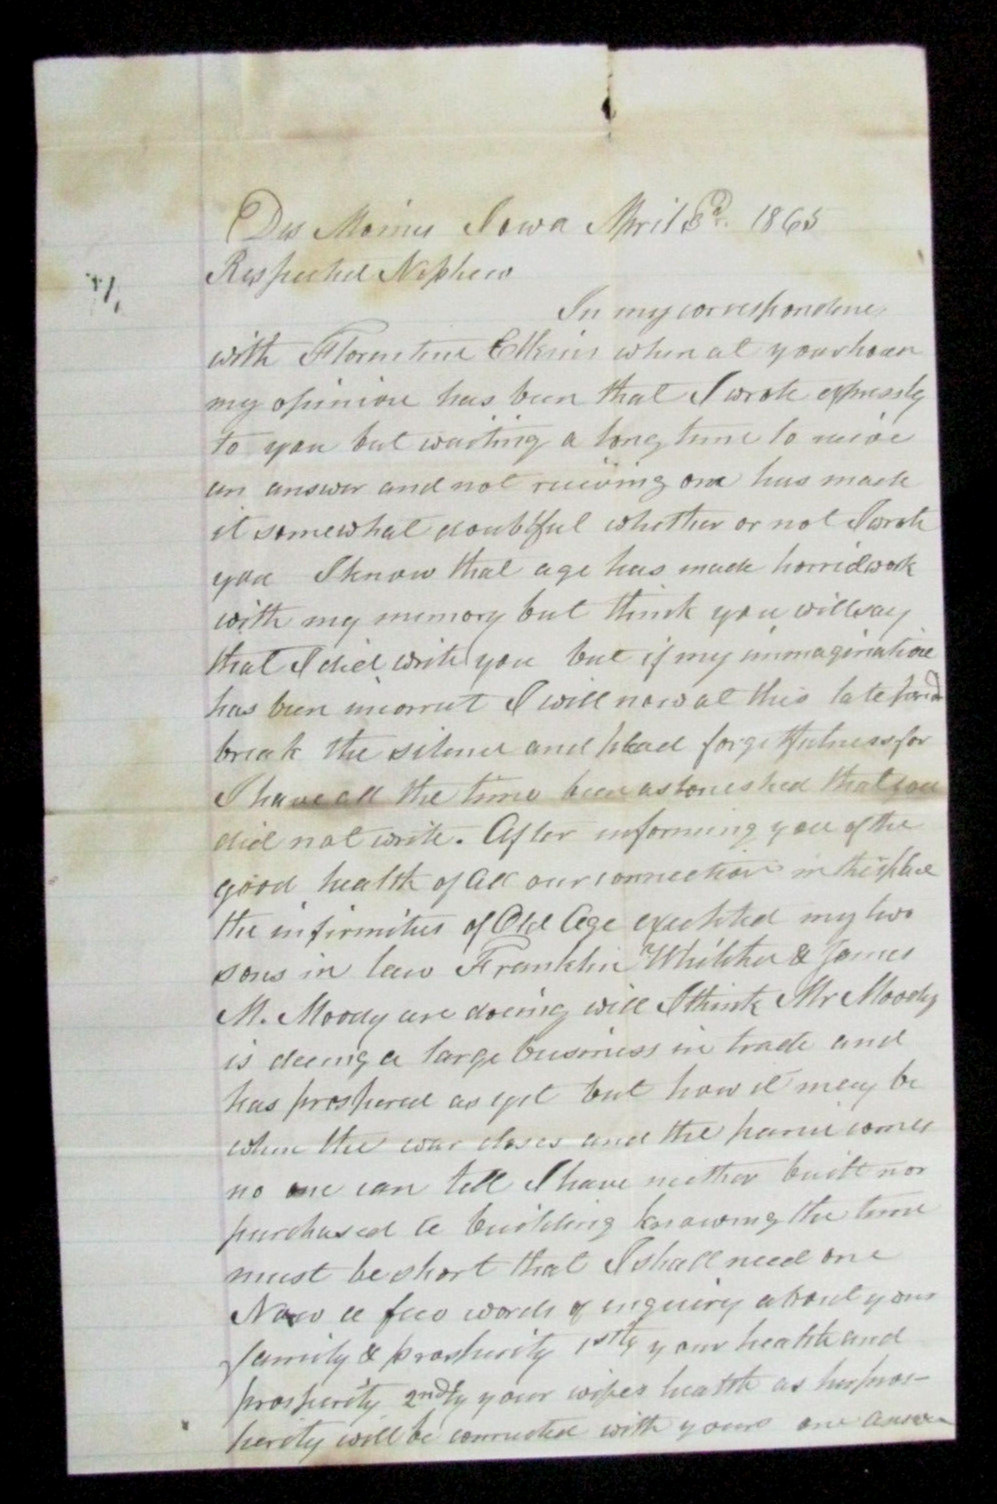 Des Moines Iowa April 3d. 1865
Respected Nephew
In my correspondence
with Florentine Elkins when at your houm
my opinion has been that I wrote expressly
to you but waiting a long time to recive
an answer and not reciving one has made
it somewhat doubtful whether or not I wrote
you I know that age has made horrid work
with my memory but think you will say
that I did write you but if my immagination
has been incorrect I will now at this late period
break the silence and plead forgetfulness for
I have all the time been astoneshed that you
did not write. After informing you of the
good health of all our connection in this place
the infirmities of Old Age excepted my two
sons in law Franklin Whitcher & James
M. Moody are doeing well I think Mr Moody
is doeing a large business in trade and
has prospered as yet but how it may be
when the war closes and the panic comes
no one can tell I have neither built nor
purchased a building knowing the time
must be short that I shall need one
Now a few words of inquiry about your
family & prosperity 1stly your health and
prosperity 2ndly your wifes health as her pros-
perity will be connected with yours one answer